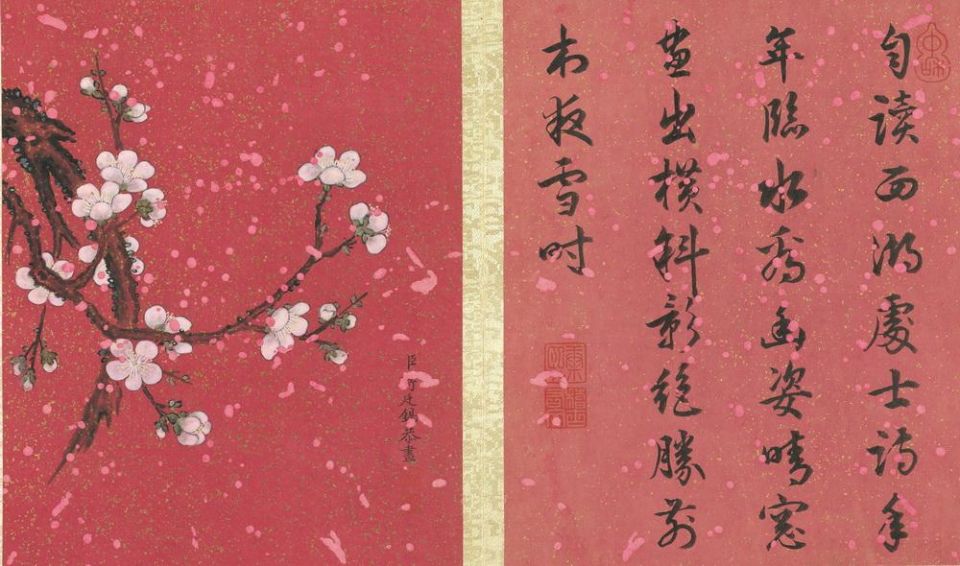 中和
自讀西湖處士詩年
年臨水看幽姿晴窓
畫出橫斜影絶勝前
村夜雪时
臣廷錫恭畫